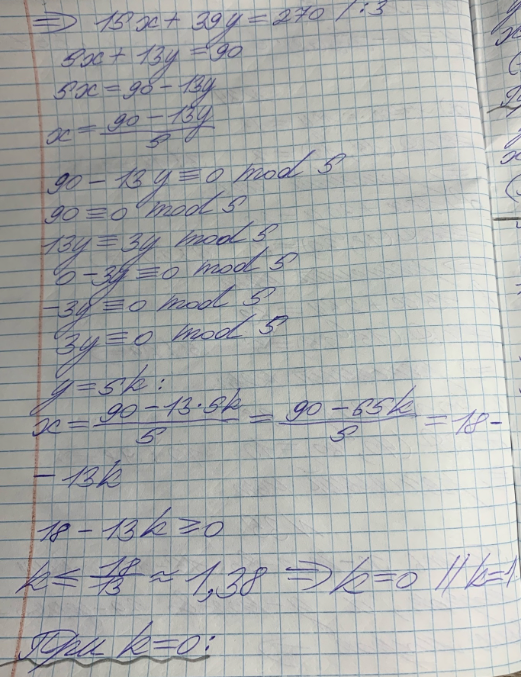 ⇒ 15x + 39y = 270 / :3
5x + 13y = 90
5x = 90 - 13y
x = (90 - 13y)/5
90 - 13y ≡ 0 mod 5
90 ≡ 0 mod 5
13y ≡ 3y mod 5
0 - 3y ≡ 0 mod 5
-3y ≡ 0 mod 5
3y ≡ 0 mod 5
y = 5k:
x = (90 - 13·5k)/5 = (90 - 65k)/5 = 18 -
- 13k
18 - 13k ≥ 0
k ≤ 18/13 ≈ 1,38 ⇒ k=0 // k=1
При k=0: